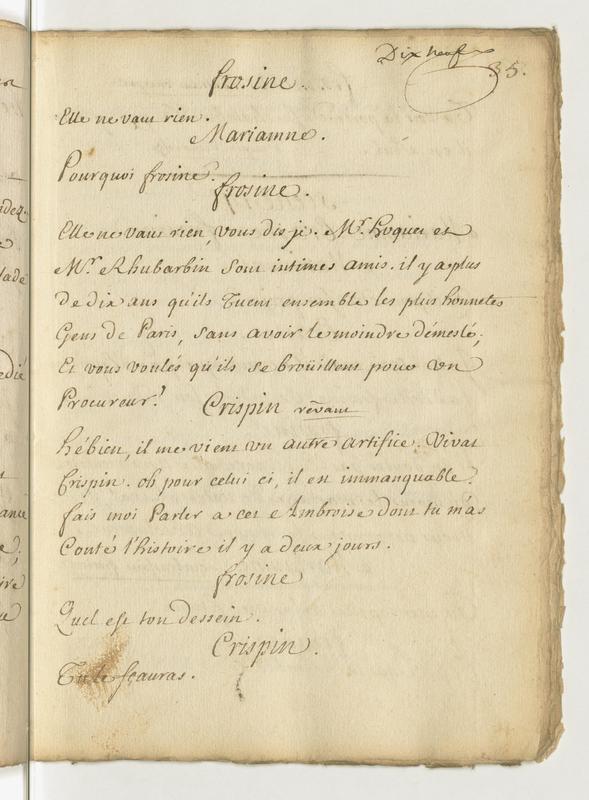 Dix neuf
35.
frosine.
Elle ne vaut rien.
Mariamne.
Pourquoi frosine?
frosine.
Elle ne vaut rien, vous dis je. Mr. hoquet et
Mr. Rhubarbin sont intimes amis. il y a plus
de dix ans qu'ils Tuent ensemble les plus honnetes
Gens de Paris, sans avoir le moindre démeslé;
Et vous voulés qu'ils se broüillent pour un
Procureur?
Crispin rêvant
hébien, il me vient un autre artifice. Vivat
Crispin. oh pour celui ci, il est immanquable.
fais moi Parler a cet Ambroise dont tu m'as
Conté l'histoire il y a deux jours.
frosine
Quel est ton dessein.
Crispin.
Tu le sçauras.